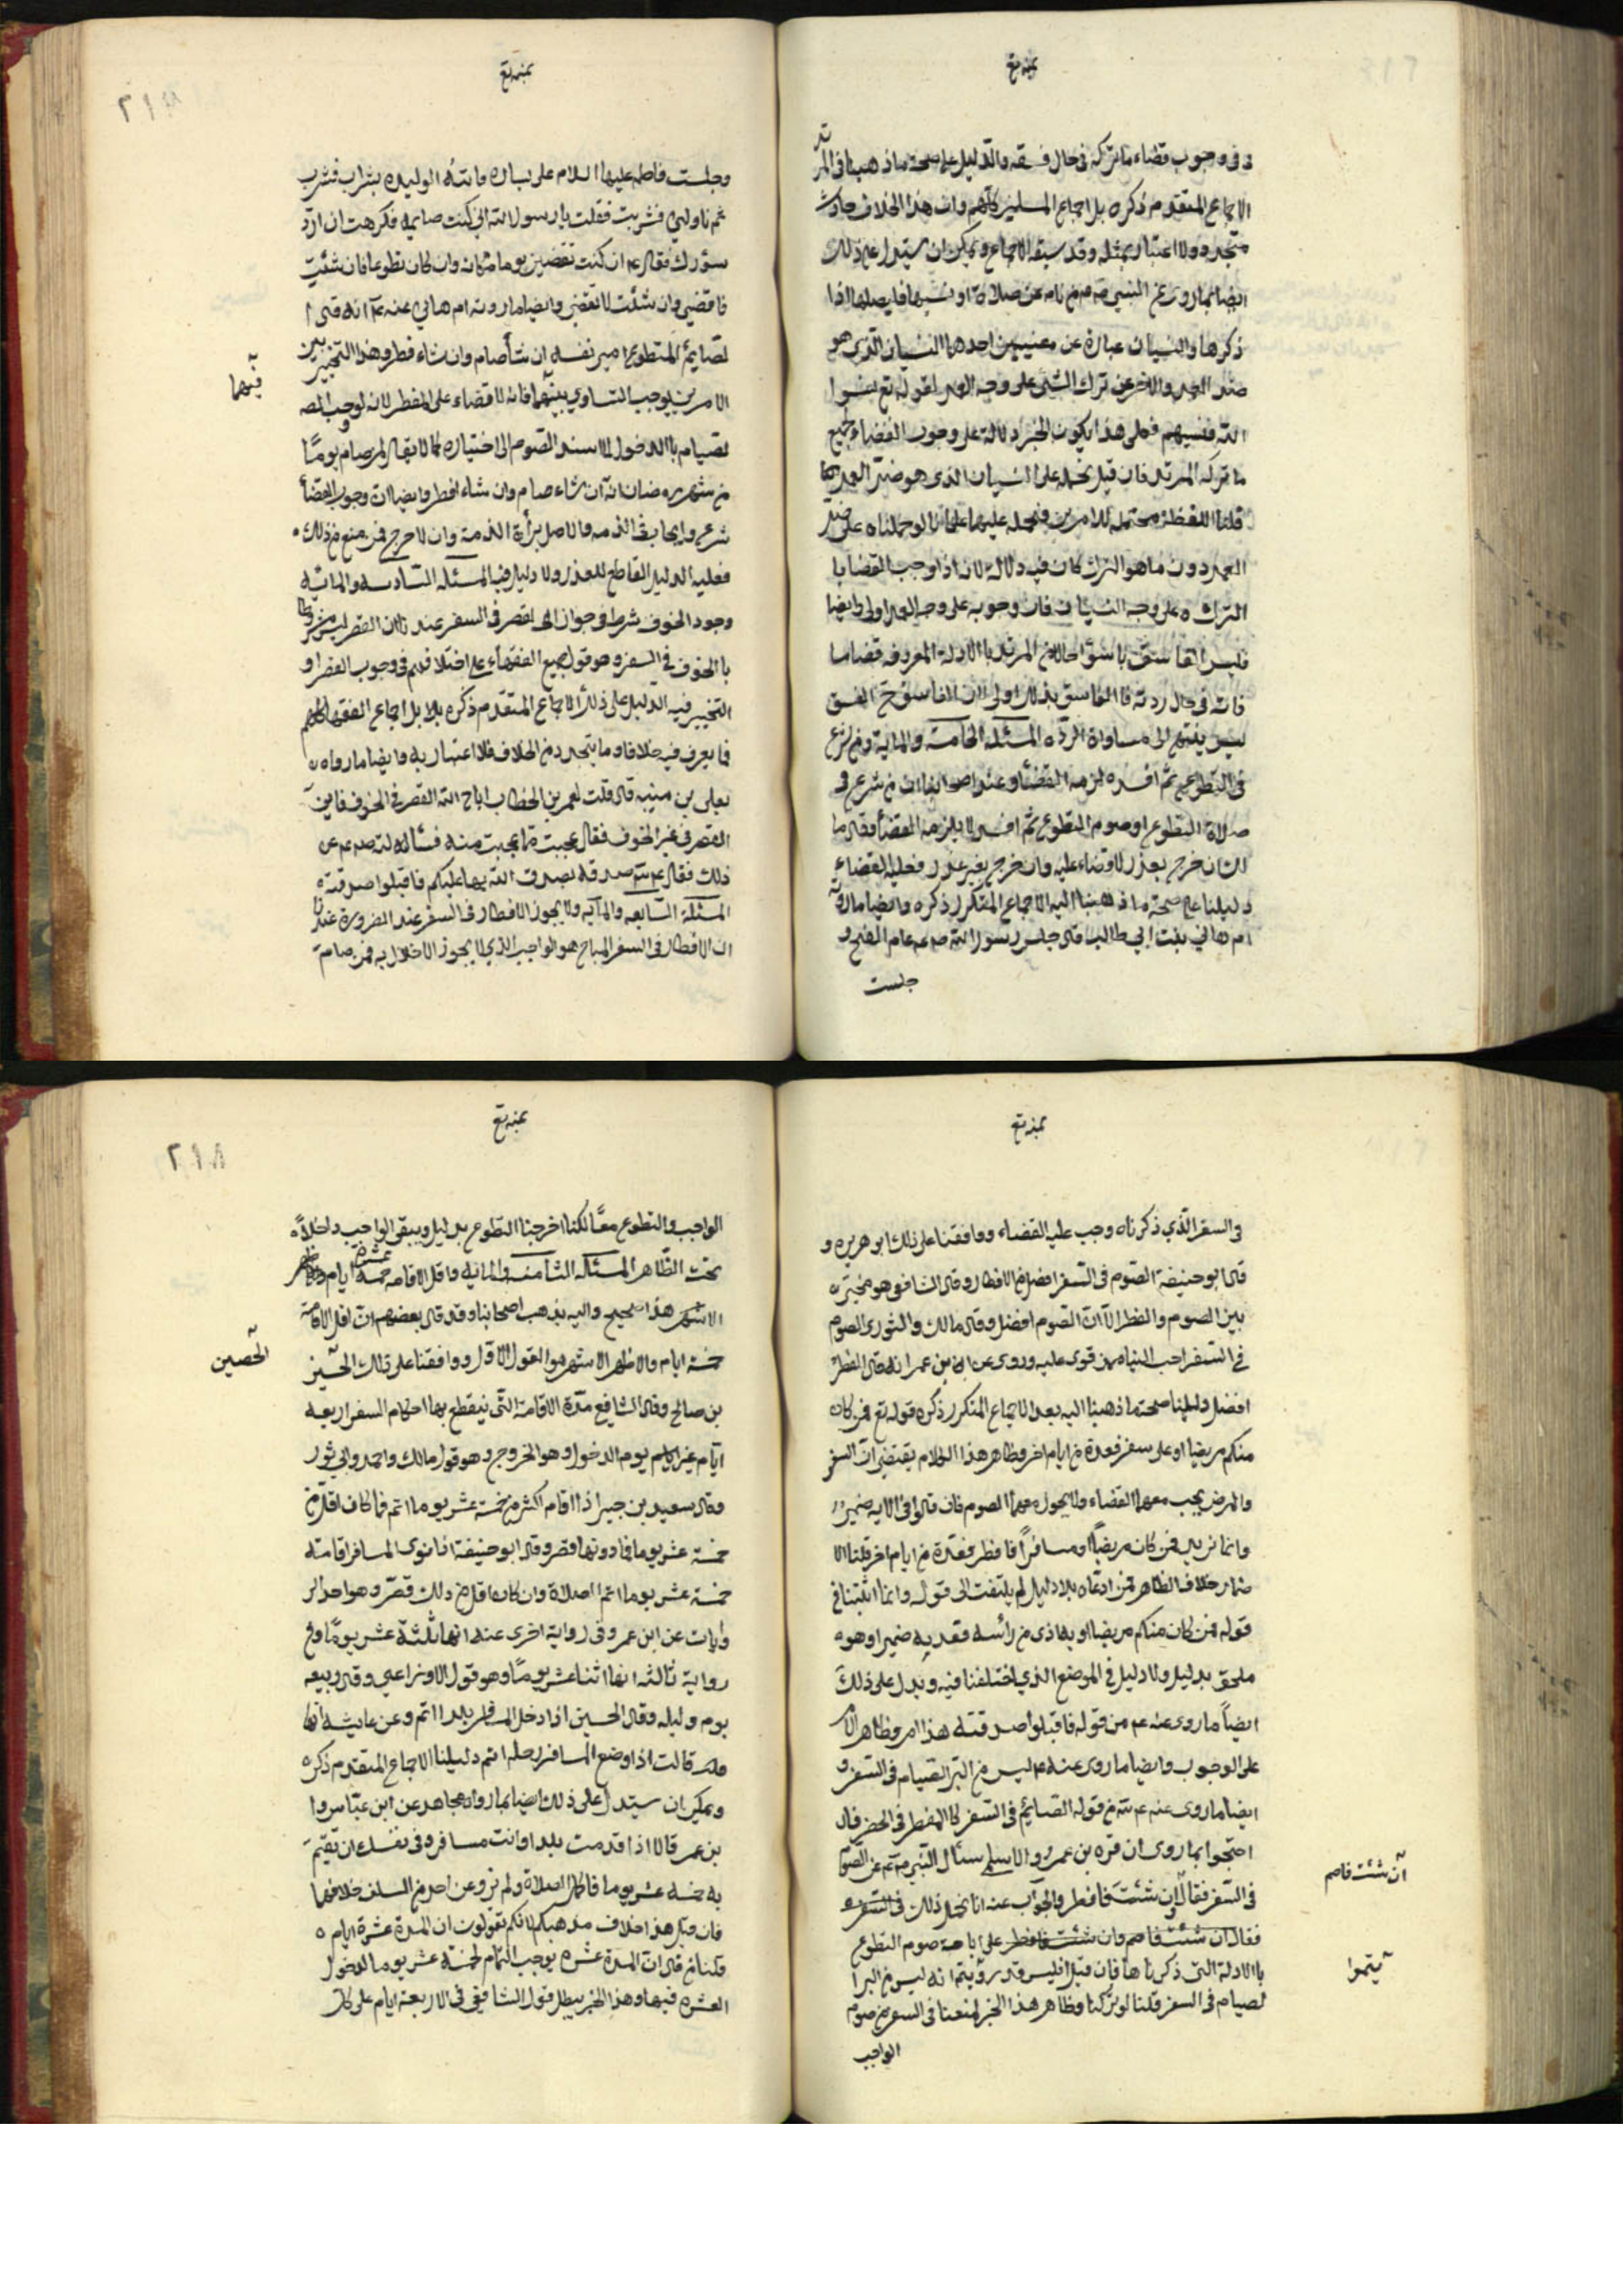 بمنه تع
ف فى وجوب قضاء ما تركه فى حال فسقه والدليل على صحة ما ذهبنا فى المرتد
الاجماع المتقدم ذكره بل اجماع المسلمين كلهم وان هذا الخلاف حادث
متجدد ولا اعتبار بمثله وقد سبقه الاجماع ويمكن ان يستدل على ذلك
ايضا بما روى عن النبى ص م من نام عن صلاة او نسيها فليصلها اذا
ذكرها والنسيان عبارة عن معنيين احدهما النسيان الذى هو
ضد العمد والاخر عن ترك الشئ على وجه العمد لقوله تع نسوا
الله فنسيهم فعلى هذا يكون الخبر دلالة على وجوب القضاء لجميع
ما تركه المرتد فان قيل نحمله على النسيان الذى هو ضد العمد
قلنا اللفظة محتملة للامرين فنحمله عليهما على انا لو حملناه على ضد
العمد دون ما هو الترك كان فيه دلالة لانه اذا وجب القضا با
الترك ه على وجه النسيان فان وجوبه على وجه العمد اولى وايضا
فليس الفاسق باسوأ حالا من المرتد بالادلة المعروفة قضا ما
فاته فى حال ردته فا الفاسق بذلك اولى لان الفاسق الفسق
ليس ينتهى الى مساواة الردة المسئلة الخامسة والماية ومن شرع
فى التطوع ثم افسده لزمه القضأ وعند اصحابنا ان من شرع فى
صلاة التطوع او صوم التطوع ثم افسد لا يلزمه القضأ وقال ما
لك ان خرج بعذر لا قضاء عليه وان خرج بغير عذر فعليه القضاء
دليلنا على صحة ما ذهبنا اليه الاجماع المتكرر ذكره وايضا ما روته
ام هانى بنت ابى طالب قال جلس رسول الله ص ع م عام الفتح و
جلست
بمنه تع
٢١٧
وجلست فاطمه عليها السلام على يساره فاتته الوليده بشراب فشرب
ثم ناولنى فشربت فقلت يا رسول الله انى كنت صايمه فكرهت ان ارد
سؤرك فقال ع م ان كنت تقضين يوما مكانه وان كان تطوعا فان شئت
فاقضى وان شئت لا تقضى وايضا ما روته ام هانى عنه ع م انه قال ا
لصايم المتطوع امير نفسه ان شأ صام وان شاء فطر وهذا التخيير بين
الامرين يوجب التساوى بينهما فانه لا قضاء على المفطر لانه لو وجب
لصيام باالدخول لما اسند الصوم الى اختياره كما لا يقال لمن صام يومًا
من شهر رمضان انه ان شاء صام وان شاء افطر وايضا ان وجوب القضأ
شرعى وايجاب فى الذمه والاصل برأة الذمة وان لا حرج فمن منع من ذلك
فعليه الدليل القاطع للعذر ولا دليل فيه المسئله السادسه والمائه
وجود الخوف شرط فى جواز القصر فى السفر عندنا ان القصر ليس مشروطا
باالخوف فى السفر وهو قول جميع الفقهاء على اختلافهم فى وجوب القصر او
التخيير فيه الدليل على ذلك الاجماع المتقدم ذكره بلا بل اجماع الفقها كلهم
فما يعرف فيه خلافا وما يتجدد من الخلاف فلا اعتبار به وايضا ما رواه
يعلى بن منيه قال قلت لعمر بن الخطاب اباح الله القصر فى الخوف فاين
القصر فى غير الخوف فقال عجبت مما عجبت منه فسألت رسول الله ص ع م عن
ذلك فقال ع م صدقه تصدق الله بها عليكم فاقبلوا صدقته
المسئلة السابعه والمائه ولا يجوز الافطار فى السفر عند الضرورة عندنا
ان الافطار فى السفر المباح هو الواجب الذى لا يجوز الاخلال به فمن صامه
فيهما
بمنه تع
فى السفر الذى ذكرناه وجب عليه القضاء ووافقنا على ذلك ابو هريره و
قال ابو حنيفة الصوم فى السفر افضل من الافطار وقال الشافعى هو مخير
بين الصوم والفطر الا ان الصوم افضل وقال مالك والثورى الصوم
فى السفر احب الينا لمن قوى عليه وروى عن ابن عمر انه قال الفطر
افضل دليلنا صحة ما ذهبنا اليه بعد الاجماع المتكرر ذكره قوله تع فمن كان
منكم مريضا او على سفر فعدة من ايام اخر وظاهر هذا الكلام يقتضى ان السفر
والمرض يجب معهما القضاء ولا يجوز معهما الصوم فان قالوا فى الايه ضمير
وانما نريد فمن كان مريضا او مسافرا فافطر فعدة من ايام اخر قلنا الا
ضمار خلاف الظاهر فمن ادعاه بلا دليل لم يلتفت الى قوله وانما اثبتنا فى
قوله فمن كان منكم مريضا او به اذى من رأسه ففدية ضميرا وهو
ملحق بدليل ولا دليل فى الموضع الذى اختلفنا فيه ويدل على ذلك
ايضاً ما روى عنه ع م من قوله فاقبلوا صدقته هذا امر وظاهر الامر
على الوجوب وايضا ما روى عنه ع م ليس من البر الصيام فى السفر و
ايضا ما روى عنه ع م من قوله الصائم فى السفر كا المفطر فى الحضر فان
احتجوا بما روى ان قره بن عمرو والاسلمى سئال النبى ص ع م عن الصوم
فى السفر فقال ان شئت فافطر والجواب عنه انا نحمل ذلك فى السفر
فقال ان شئت فاصم وان شئت فافطر على اباحة صوم التطوع
باالادلة التى ذكرناها فان قيل افليس قد رويتم انه ليس من البر ا
لصيام فى السفر قلنا لو تركنا وظاهر هذا الخبر لمنعنا فى السفر من صوم
الواجب
ان شئت فاصم
يتموا
بمنه تع
٢١٨
الواجب والتطوع معًا لكنا اخرجنا التطوع بدليل ويبقى الواجب داخلا
تحت الظاهر المسئله الثامنه والمائيه واقل الاقامه عشرة ايام
الاشهر هذا صحيح واليه يذهب اصحابنا وقد قال بعضهم ان اقل الاقامة
خمسة ايام والاظهر الاشهر هو القول الاول ووافقنا على ذلك الحسين
بن صالح وقال الشافعى مدة الاقامة التى ينقطع بها احكام السفر اربعه
ايام غير يوم الدخول وهو الخروج وهو قول مالك واحمد وابى ثور
وقال سعيد بن جبير اذا اقام اكثر من خمسة عشر يوما اتم فما كان اقل من
خمسة عشر يوما فما دونها قصر وقال ابو حنيفة اذا نوى المسافر اقامة
خمسة عشر يوما اتم الصلاة وان كان اقل من ذلك قصر وهو احد الر
وايات عن ابن عمر وفى رواية اخرى عنه انها ثلثة عشر يومًا وفى
رواية ثالثه انها اثنا عشر يومًا وهو قول الاوزاعى وقال ربيعه
يوم وليله وقال الحسين اذا دخل المسافر بلدا اتم وعن عايشه انها
قالت اذا وضع المسافر رحله اتم دليلنا الاجماع المتقدم ذكره
ويمكن ان يستدل على ذلك ايضا بما رواه مجاهد عن ابن عباس وا
بن عمر قالا اذا قدمت بلدا وانت مسافر وفى نفسك ان تقيم
به خمسه عشر يوما فاكمل الصلاة ولم نرو عن احد من السلف خلافهما
فان قيل هذا خلاف مذهبكم لانكم تقولون ان المدة عشرة ايام
قلنا من قال ان المدة عشره يوجب التمام لخمسة عشر يوما لدخول
العشره فيها وهذا الخبر يبطل قول الشافعى فى الاربعة ايام على كل
الحصين